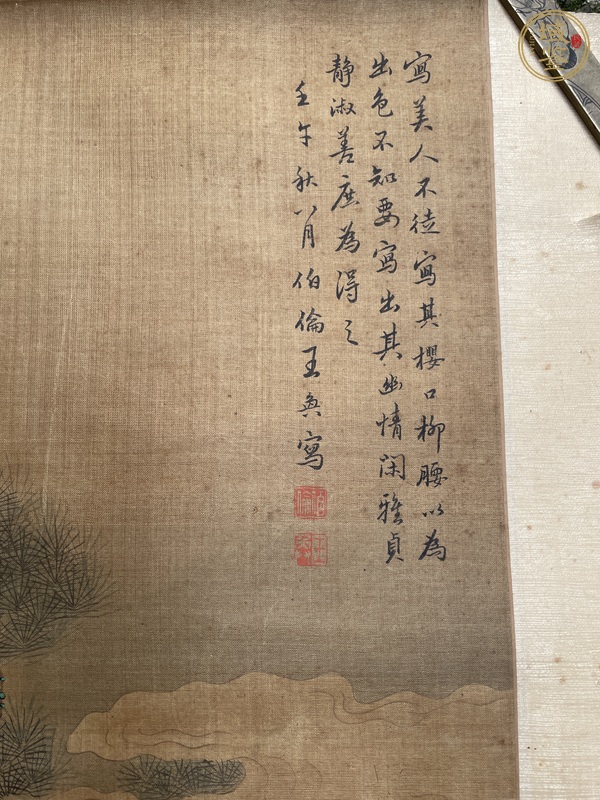 寫美人不徒寫其櫻口柳腰以為
出色不知要寫出其幽情閑雅貞
靜淑善庶為得之
壬午秋八月伯倫王奐寫